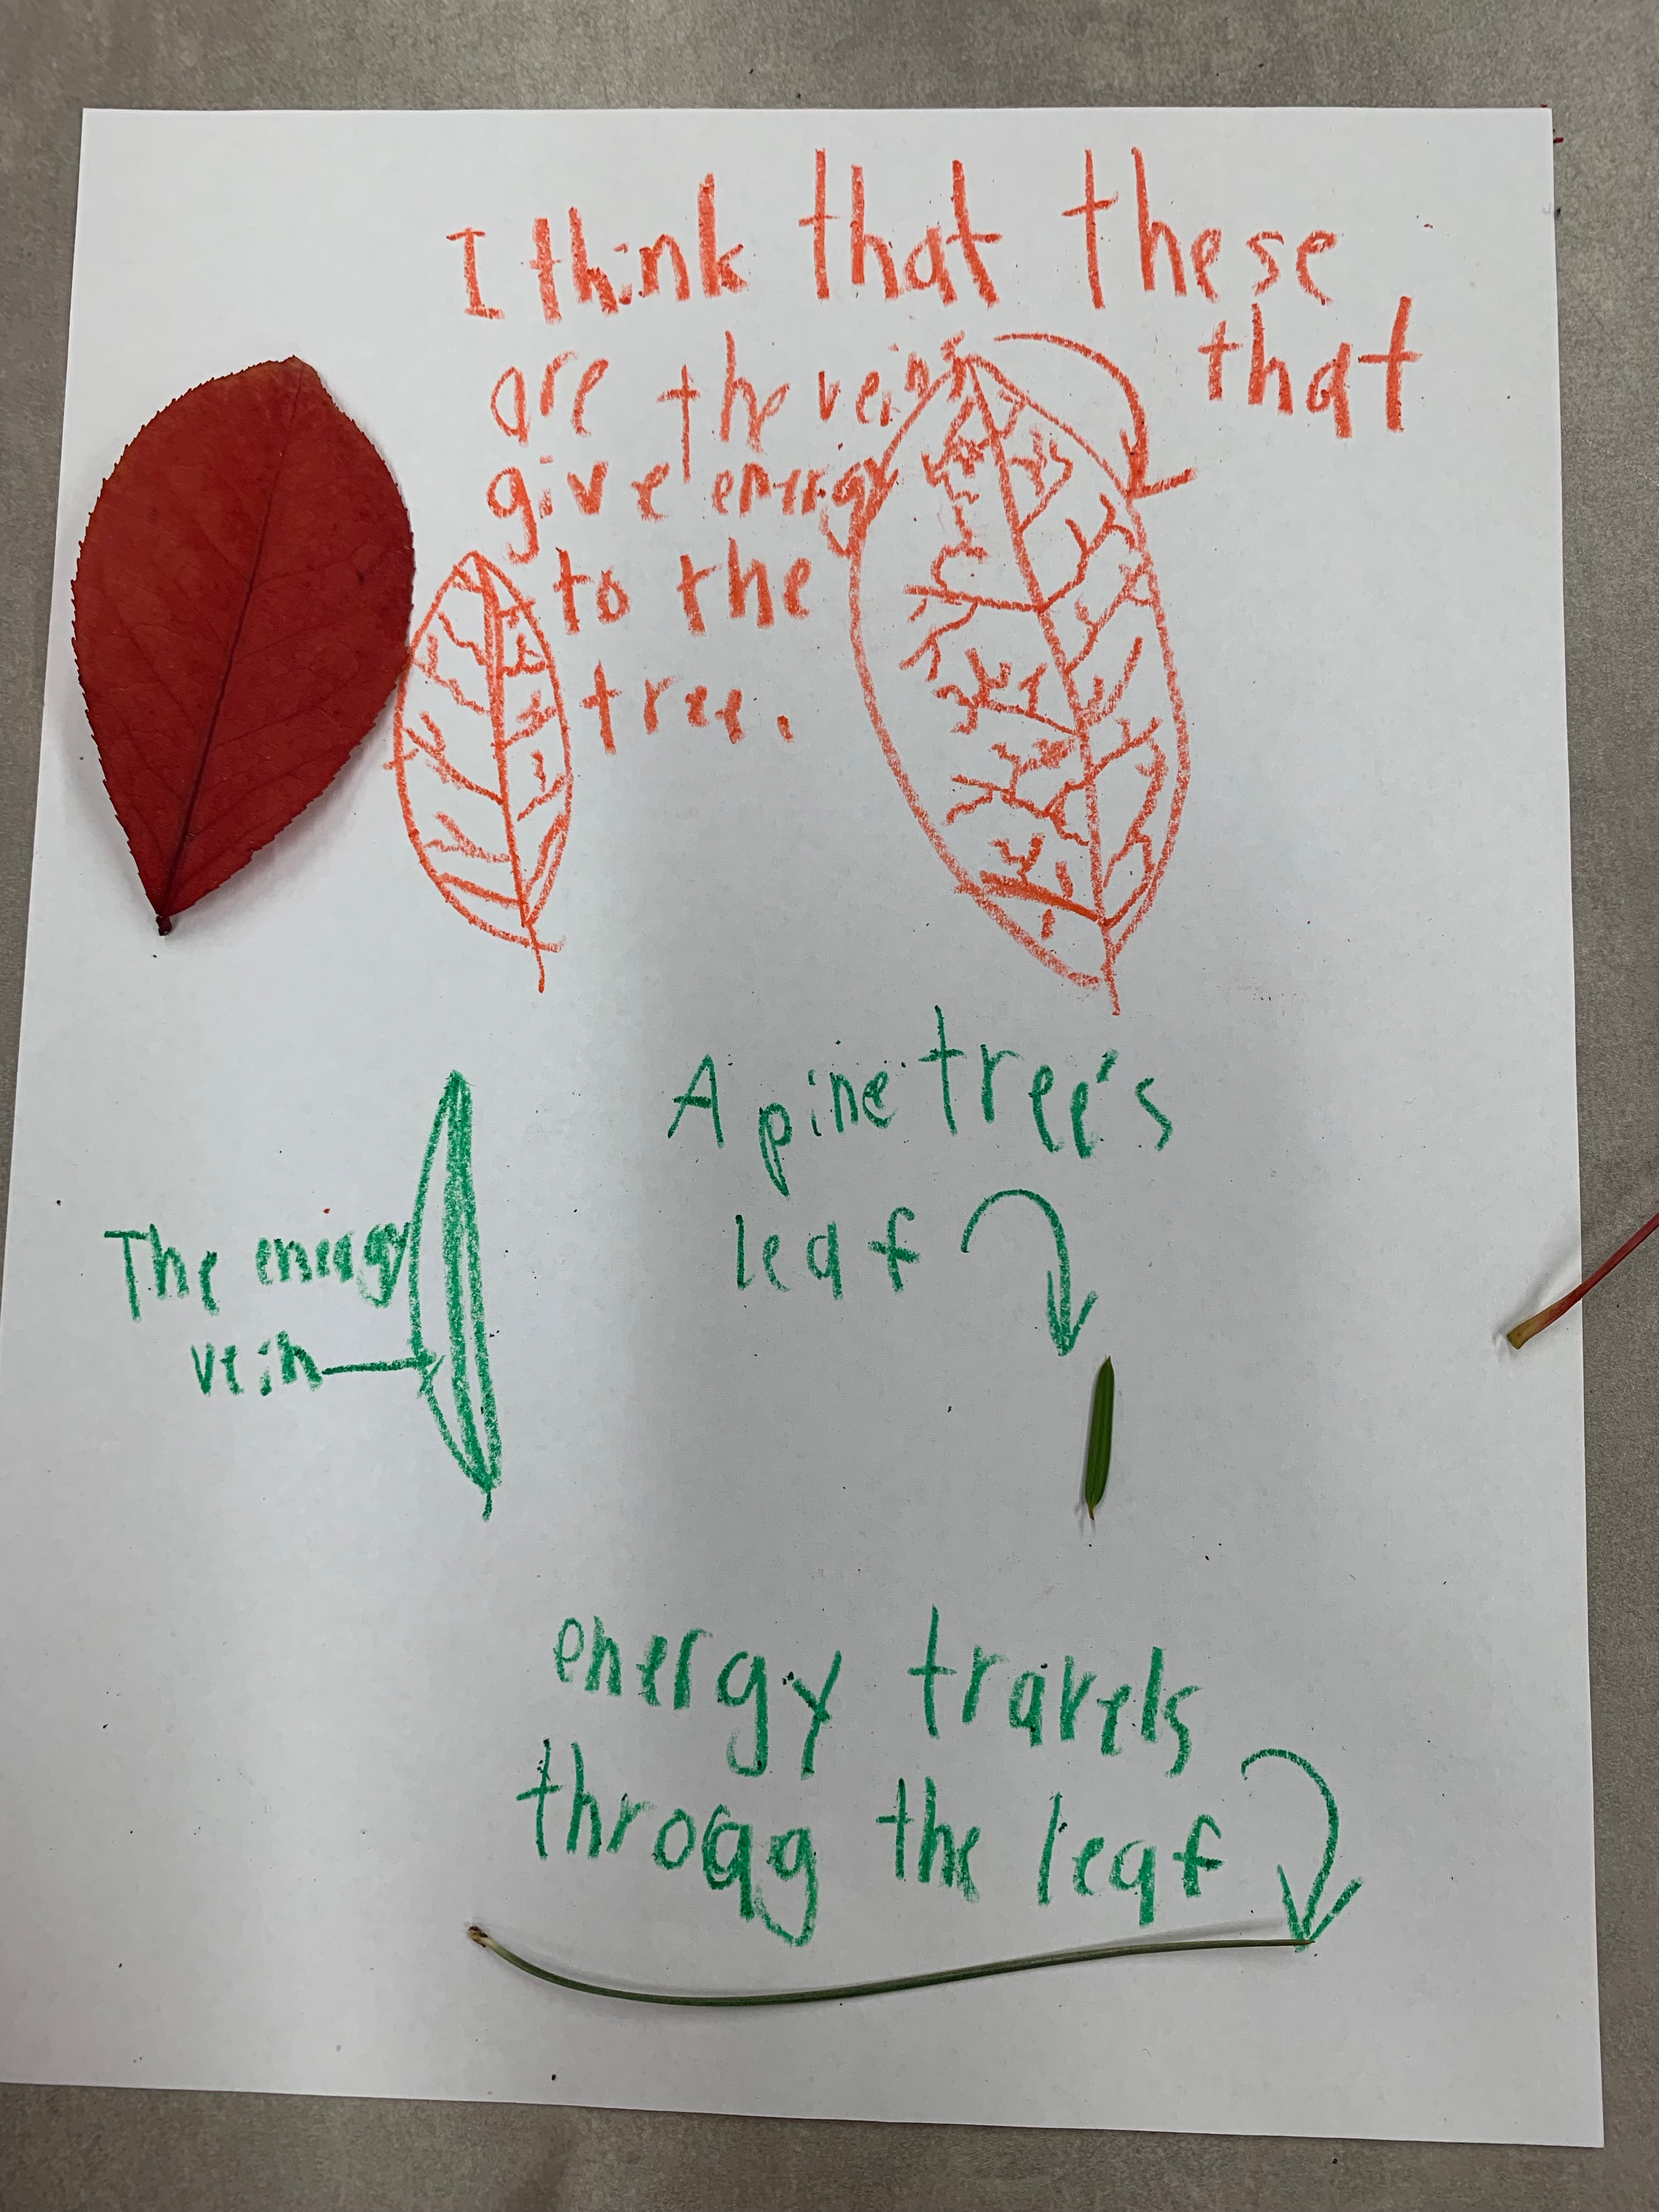 I think that these
are the veins that
give energy
to the
tree.
A pine tree's
leaf
The energy
vein
energy travels
throagg the leaf